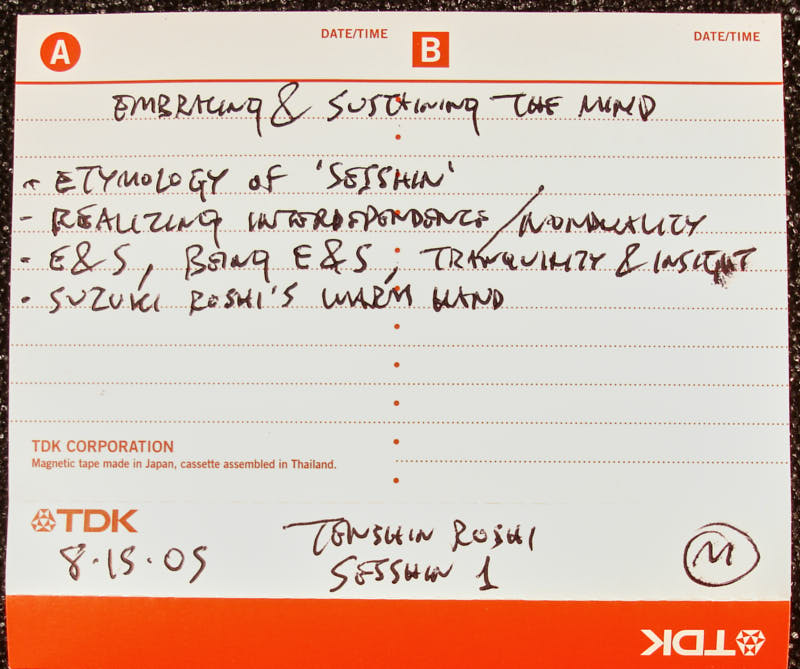 A DATE/TIME B DATE/TIME
EMBRACING & SUSTAINING THE MIND
- ETYMOLOGY OF 'SESSHIN'
- REALIZING INTERDEPENDENCE / NONDUALITY
- E&S, BEING E&S, TRANQUILITY & INSIGHT
- SUZUKI ROSHI'S WARM HAND
TDK CORPORATION
Magnetic tape made in Japan, cassette assembled in Thailand.
TDK
8.15.05
TENSHIN ROSHI
SESSHIN 1
M
TDK